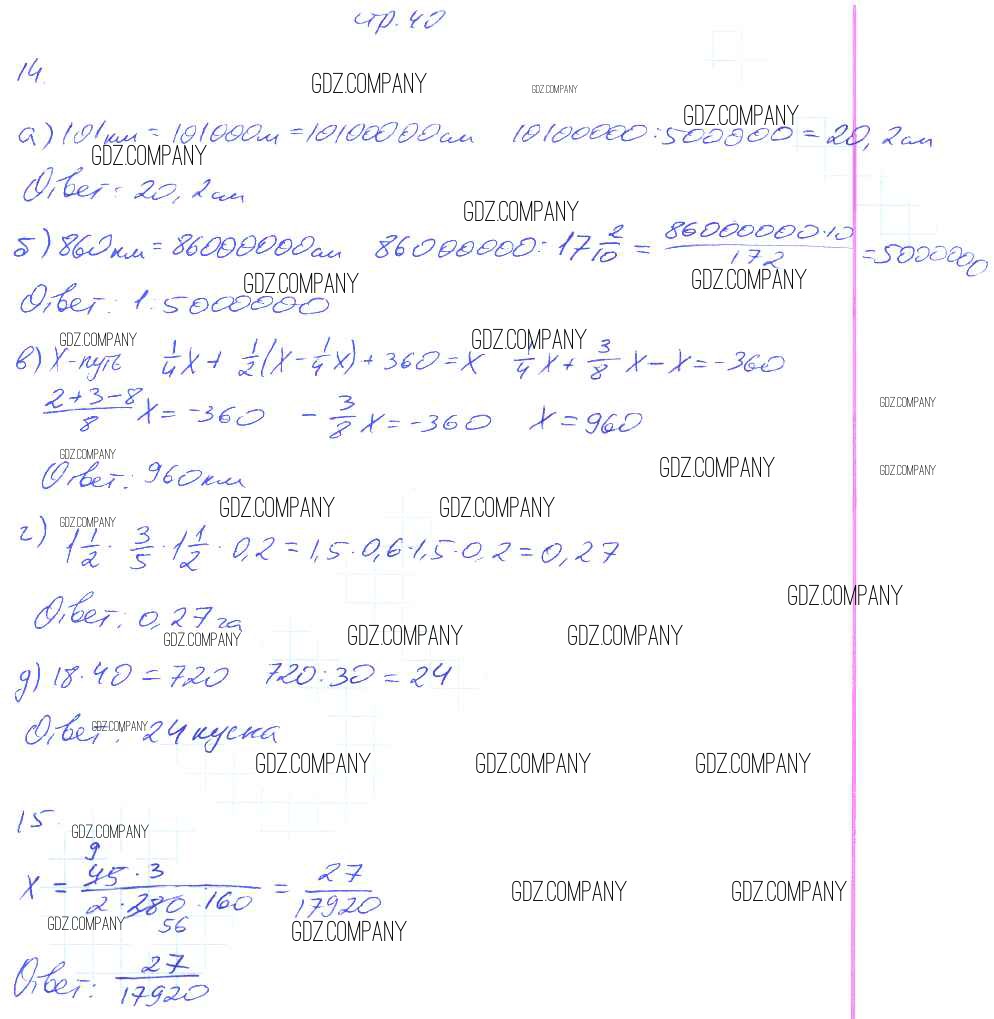 стр. 40
14.
GDZ.COMPANY GDZ.COMPANY
GDZ.COMPANY
а) 101км = 101000м = 10100000см 10100000 : 500000 = 20,2см
GDZ.COMPANY
Ответ: 20,2см
GDZ.COMPANY
б) 860км = 86000000см 86000000 : 17 2/10 = 86000000·10/172 = 5000000
GDZ.COMPANY GDZ.COMPANY
Ответ: 1:5000000
GDZ.COMPANY GDZ.COMPANY
в) X-путь 1/4X + 1/2(X - 1/4X) + 360 = X 1/4X + 3/8X - X = -360
2+3-8/8 X = -360 - 3/8X = -360 X = 960
GDZ.COMPANY
GDZ.COMPANY GDZ.COMPANY GDZ.COMPANY
Ответ: 960км
GDZ.COMPANY GDZ.COMPANY
GDZ.COMPANY
г) 1 1/2 · 3/5 · 1 1/2 · 0,2 = 1,5·0,6·1,5·0,2 = 0,27
GDZ.COMPANY
Ответ: 0,27га
GDZ.COMPANY GDZ.COMPANY GDZ.COMPANY
д) 18·40 = 720 720:30 = 24
GDZ.COMPANY
Ответ: 24 куска
GDZ.COMPANY GDZ.COMPANY GDZ.COMPANY
15.
GDZ.COMPANY
9
X = 45·3/2·280·160 = 27/17920
56
GDZ.COMPANY GDZ.COMPANY
GDZ.COMPANY GDZ.COMPANY
Ответ: 27/17920